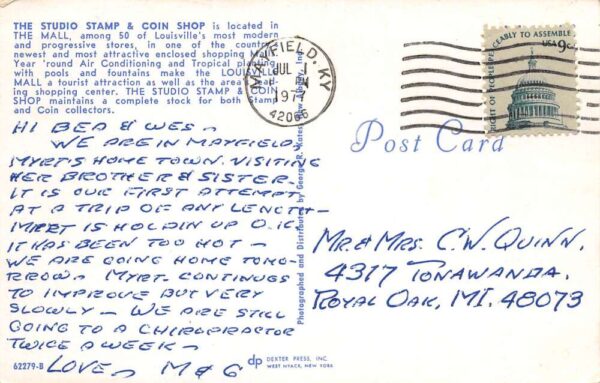 THE STUDIO STAMP & COIN SHOP is located in
THE MALL, among 50 of Louisville's most modern
and progressive stores, in one of the country's
newest and most attractive enclosed shopping Malls.
Year 'round Air Conditioning and Tropical planting
with pools and fountains make the LOUISVILLE
MALL a tourist attraction as well as the area's lead-
ing shopping center. THE STUDIO STAMP & COIN
SHOP maintains a complete stock for both Stamp
and Coin collectors.
HI BEA & WES ~
WE ARE IN MAYFIELD,
MYRT'S HOME TOWN. VISITING
HER BROTHER & SISTER.
IT IS OUR FIRST ATTEMPT
AT A TRIP OF ANY LENGTH ~
MYRT IS HOLDIN UP O.K.
IT HAS BEEN TOO HOT ~
WE ARE GOING HOME TOMO-
RROW. MYRT. CONTINUES
TO IMPROVE BUT VERY
SLOWLY ~ WE ARE STILL
GOING TO A CHIROPRACTOR
TWICE A WEEK ~
LOVE, M & G
62279-B
Photographed and Distributed by George R.
dp DEXTER PRESS, INC.
WEST NYACK, NEW YORK
MAYFIELD, KY
JUL 1
PM
1977
42066
RIGHT OF PEOPLE PEACEABLY TO ASSEMBLE
USA 9c
Post Card
MR. & MRS. C.W. QUINN.
4317 TONAWANDA.
ROYAL OAK, MI. 48073